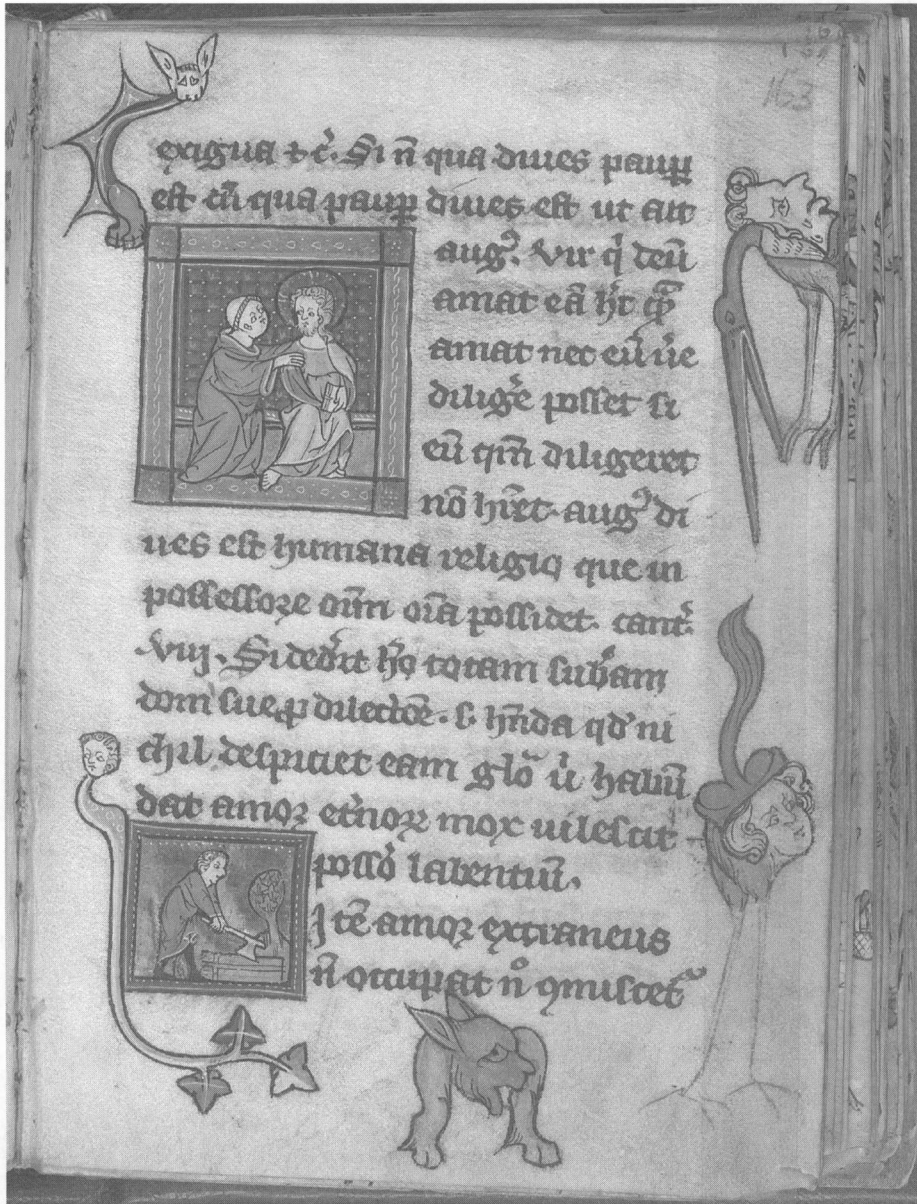 163
exigua ⁊ c̉. Si n̄ qua diues paup̲
est tn̄ qua paup̲ diues est ut ait
augꝰ. Vir q̇ deū
amat eā ht̄
amat nec eū u̓e
diligē posset si
eū qm̄ diligeret
nō hr̄et. augꝰ di
ues est humana religio que in
possessore oīm oīa possidet. cant̓.
.Viij. Si ded̓it hō totam sub̄am
dom̓ sue ꝓ dilectōe. s. hn̄da qd̓ ni
chil despiciet eam glō u̓i habūn
dat amor et̓norꝫ mox uilescit
poss̓o labentiū.
Itē amor extraneus
n̄ occupat n̊ ꝯmiscet᷑